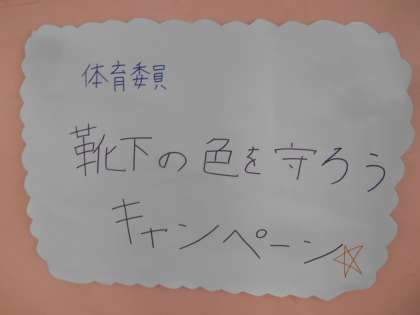 体育委員
靴下の色を守ろう
キャンペーン☆